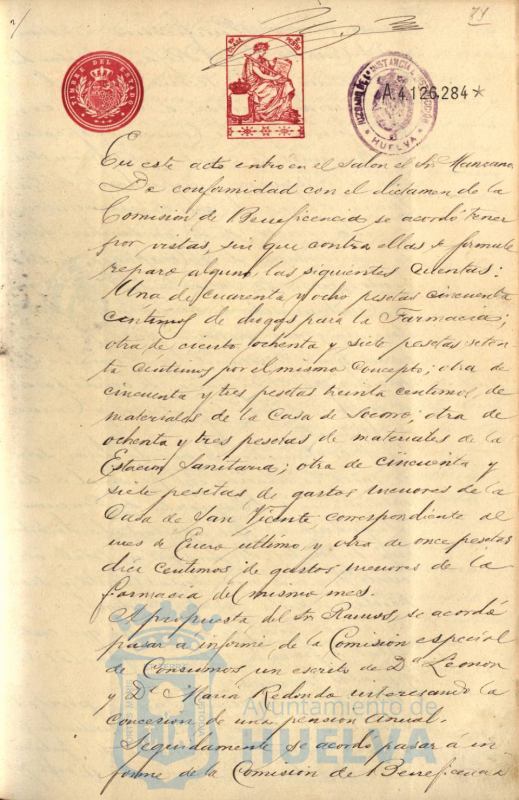 79
TIMBRE DEL ESTADO
HUELVA
A4.126.284*
En este acto entró en el salon el Sr Manzano.
De conformidad con el dictamen de la
Comisión de Beneficencia se acordó tener
por vistas, sin que contra ellas se formule
reparo alguno las siguientes cuentas:
Una de cuarenta y ocho pesetas cincuenta
centimos de drogas para la Farmacia;
otra de ciento ochenta y siete pesetas seten-
ta centimos por el mismo concepto; otra de
cincuenta y tres pesetas treinta centimos de
materiales de la Casa de Socorro; otra de
ochenta y tres pesetas de materiales de la
Estacion Sanitaria; otra de cincuenta y
siete pesetas de gastos menores de la
Casa de San Vicente, correspondiente al
mes de Enero último, y otra de once pesetas
diez centimos de gastos menores de la
farmacia del mismo mes.
A propuesta del Sr Ramos, se acordó
pasar a informe de la Comisión especial
de Consumos un escrito de Dª Leonor
y Dª Maria Redondo interesando la
concesion de una pensión anual.
Seguidamente se acordó pasar á in-
forme de la Comisión de Beneficencia
Ayuntamiento de
HUELVA